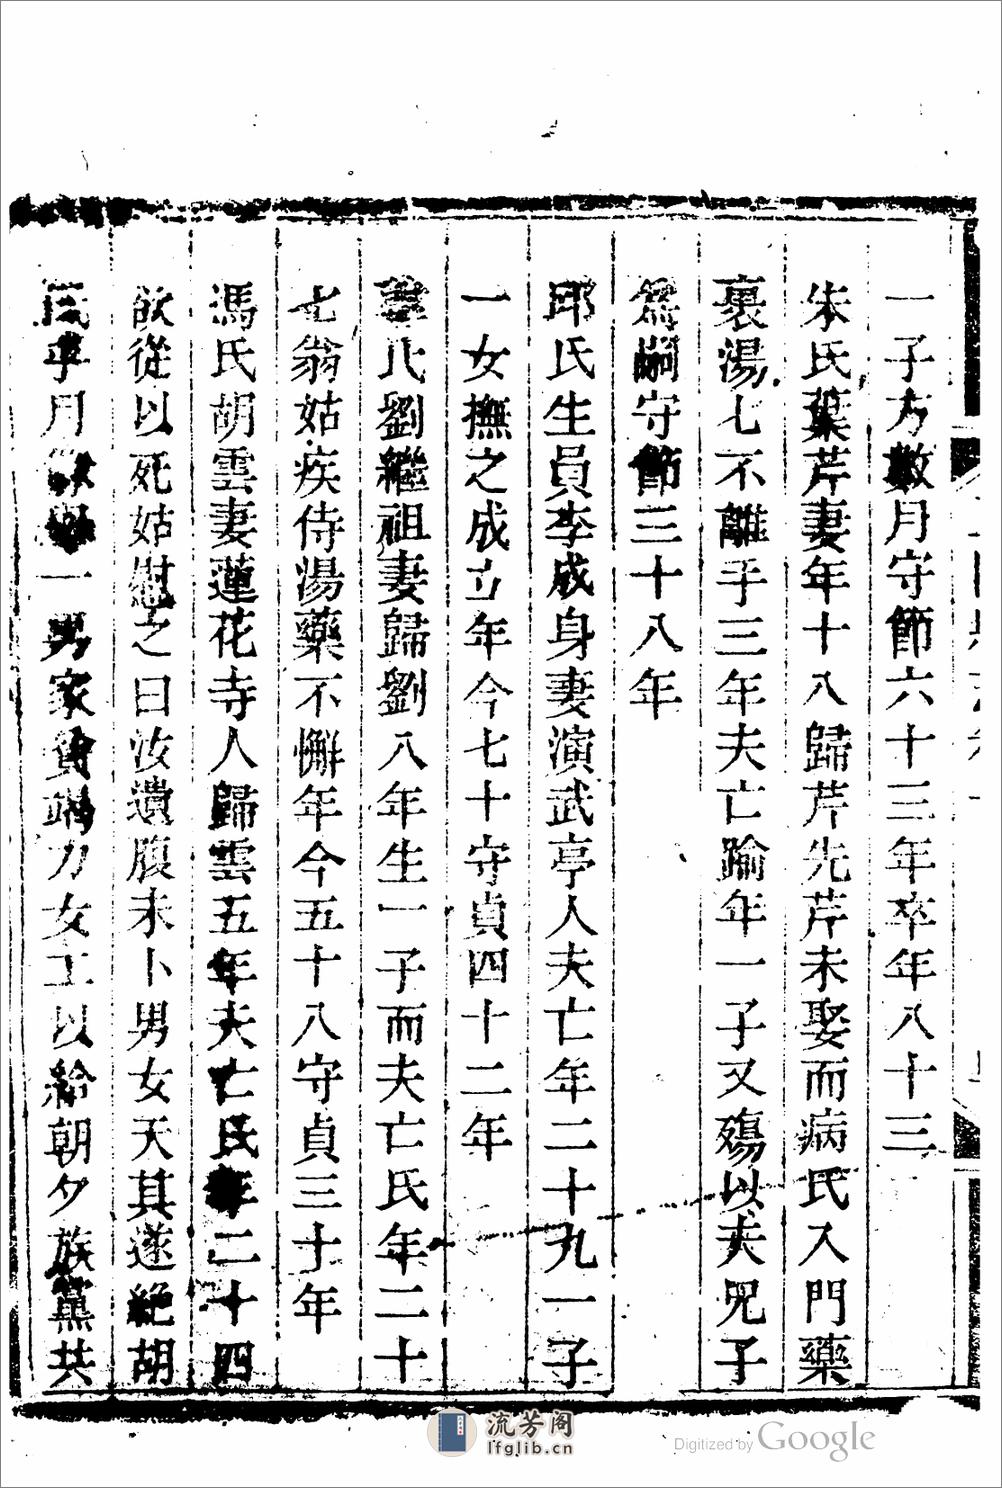 一子方數月守節六十三年卒年八十三
朱氏葉芹妻年十八歸芹先芹未娶而病氏入門藥
裹湯匕不離手三年夫亡踰年一子又殤以夫兄子
為嗣守節三十八年
邱氏生員李成身妻演武亭人夫亡年二十九一子
一女撫之成立年今七十守貞四十二年
氏劉繼祖妻歸劉八年生一子而夫亡氏年二十
七翁姑疾侍湯藥不懈年今五十八守貞三十年
馮氏胡雲妻蓮花寺人歸雲五年夫亡氏年二十四
欲從以死姑慰之曰汝遺腹未卜男女天其遂絕胡
氏乎月一男家貧竭力女工以給朝夕族黨共
流芳阁
lfglib.cn
Digitized by Google